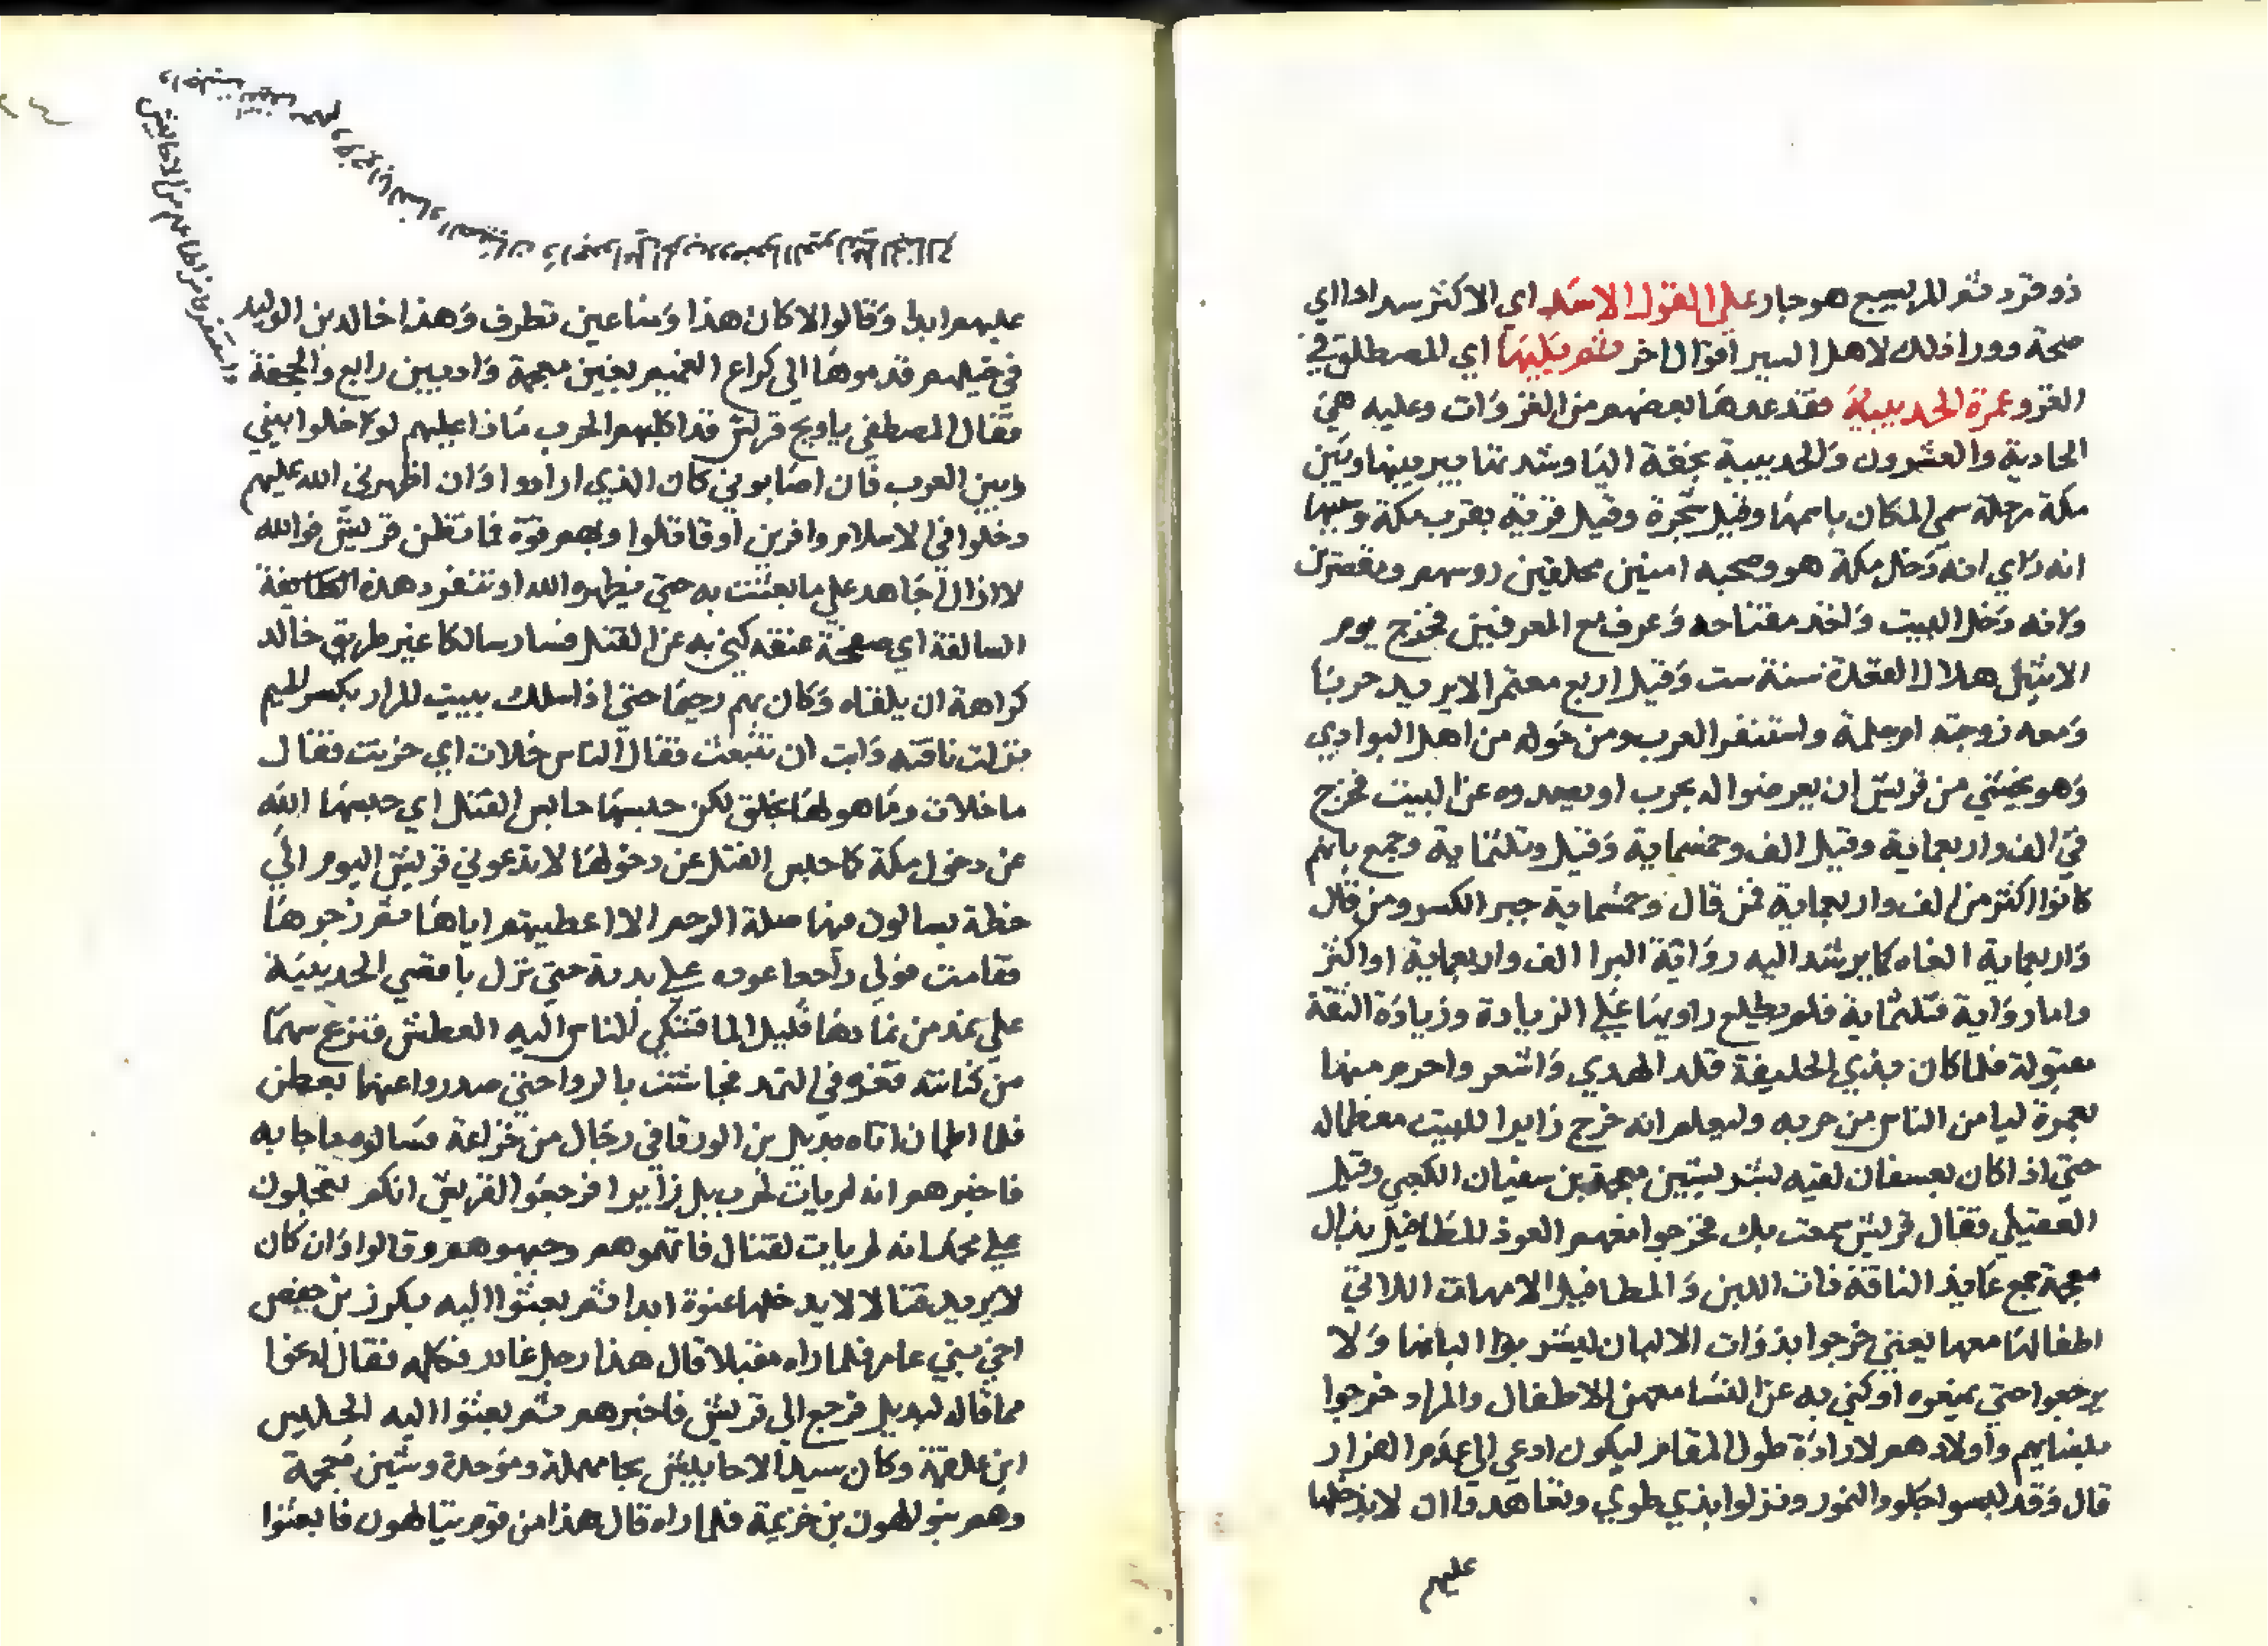 ذو قرد ثم المريسيع هو جار علي القول الاسد اي الاكثر سدادا اي
صحة وورا ذلك لاهل السير اقوال اخر ثم يليها اي المصطلق في
الغزو عمرة الحديبية فقد عدها بعضهم من الغزوات وعليه هي
الحادية والعشرون والحديبية بخفة اليا وشدتها بير بينها وبين
مكة مرحلة سمي المكان باسمها وقيل شجرة وقيل قرية بقرب مكة وسببها
انه راي انه دخل مكة هو وصحبه امنين محلقين روسهم ومقصرين
وانه دخل البيت واخذ مفتاحه وعرف مع المعرفين فخرج يوم
الاثنين هلال القعدة سنة ست وقيل اربع معتمرا لا يريد حربا
ومعه زوجته ام سلمة واستنفر العرب ومن حوله من اهل البوادي
وهو يخشي من قريش ان يعرضوا له بحرب او يصدوه عن البيت فخرج
في الف واربعماية وقيل الف وخمسماية وقيل وثلثماية وجمع بانهم
كانوا اكثر من الف واربعماية فمن قال وخمسماية جبر الكسر ومن قال
واربعماية الغاه كما يرشد اليه رواية البرا الف واربعماية او اكثر
واما رواية ثلثماية فلم يطلع راويها علي الزيادة وزيادة الثقة
مقبولة فلما كان بذي الحليفة قلد الهدي واشعر واحرم منها
بعمرة ليامن الناس من حربه وليعلم انه خرج زايرا للبيت معظما له
حتي اذا كان بعسفان لقيه بشر بشين معجمة بن سفيان الكعبي وقيل
العقيلي فقال قريش سمعت بك فخرجوا معهم العوذ المطافيل بذال
معجمة جمع عايذ الناقة ذات اللبن والمطافيل الامهات اللاتي
اطفالها معها يعني خرجوا بذوات الالبان ليشربوا البانها ولا
يرجعوا حتي يمنعوه او كني به عن النسا معهن الاطفال والمراد خرجوا
بنسايهم واولادهم لارادة طول المقام ليكون ادعي الي عدم الفرار
قال وقد لبسوا جلود النمور ونزلوا بذي طوي وتعاهدوا ان لا يدخلها
عليهم
عليهم ابدا وقالوا لا كان هذا ومنا عين تطرف وهذا خالد بن الوليد
في خيلهم قدموها الي كراع الغميم بغين معجمة واد بين رابع والجحفة
فقال المصطفي يا ويح قريش قد اكلتهم الحرب ماذا عليهم لو خلوا بيني
وبين العرب فان اصابوني كان الذي ارادوا وان اظهرني الله عليهم
دخلوا في الاسلام وافرين او قاتلوا وبهم قوة فما تظن قريش فوالله
لا ازال اجاهد علي ما بعثت به حتي يظهره الله او تنفرد هذه الطايفة
السالفة اي صفحة عنقه كني به عن القتل فسار سالكا غير طريق خالد
كراهة ان يلقاه وكان بهم رحيما حتي اذا سلك ببيت المرار بكسر الميم
بركت ناقته وابت ان تنبعث فقال الناس خلات اي حرنت فقال
ما خلات وما هو لها بخلق لكن حبسها حابس الفيل اي حبسها الله
عن دخول مكة كما حبس الفيل عن دخولها لا يدعوني قريش اليوم الي
خطة يسالون فيها صلة الرحم الا اعطيتهم اياها ثم زجرها
فقامت فولي راجعا عوده علي بدية حتي نزل باقصي الحديبية
علي ثمد من ثمادها قليل الما فشكي الناس اليه العطش فنزع سهما
من كنانته فغرزه في الثمد فجاشت بالروا حتي صدروا عنها بعطن
فلما اطمان اتاه بديل بن الورقا في رجال من خزاعة فسالوه ما جا به
فاخبرهم انه لم يات لحرب بل زايرا فرجعوا لقريش انكم تعجلون
علي محمد انه لم يات لقتال فاتهموهم وجبهوهم وقالوا وان كان
لا يريد قتالا لا يدخلها عنوة ابدا ثم بعثوا اليه مكرز بن حفص
اخي بني عامر فلما راه مقبلا قال هذا رجل غادر فكلمه فقال له نحوا
مما قال لبديل فرجع الي قريش فاخبرهم ثم بعثوا اليه الحليس
ابن علقمة وكان سيد الاحابيش بحا مهملة وموحدة وشين معجمة
وهم بنو الهون بن خزيمة فلما راه قال هذا من قوم يتالهون فابعثوا
واستنفروا من اطاعهم من الاحابيش